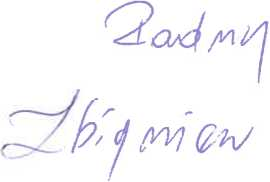 Radny
Zbigniew